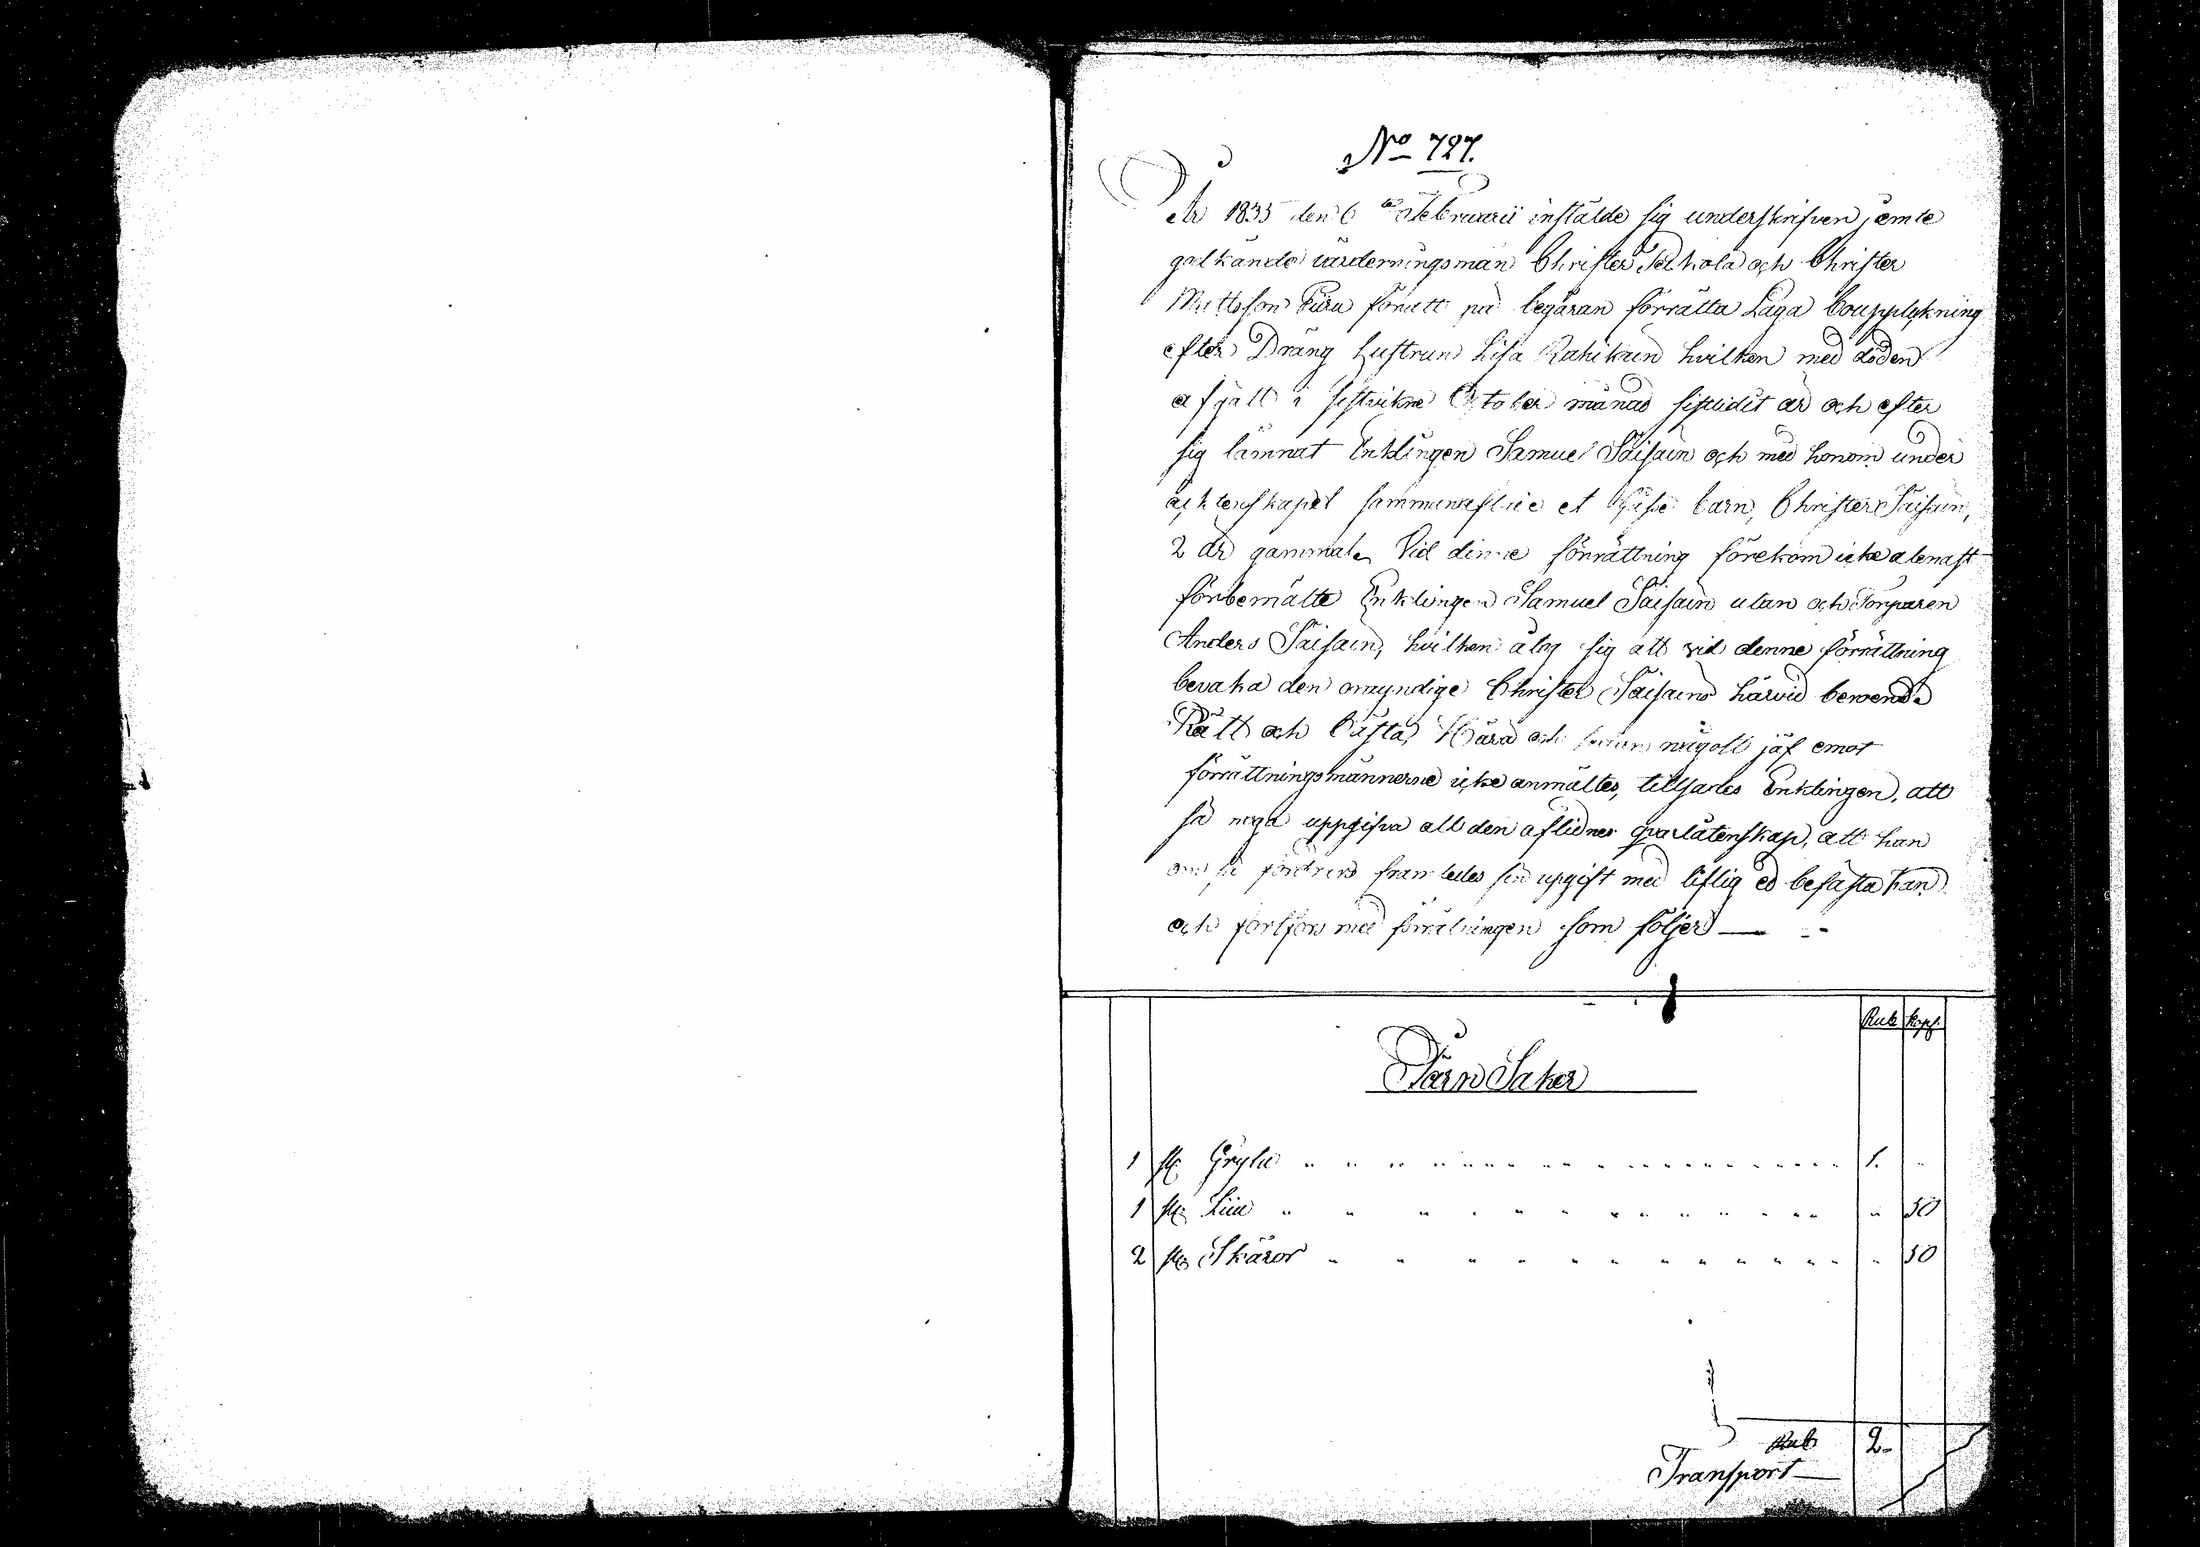 No 727.
År 1835 den 6te Februarii instälde sig underskrifven jemte
godkände värderningsmän Christer Pelkola och Christer
Mattsson Pura för att på begäran förrätta Laga bouppteckning
efter Dräng hustrun Lisa Rahikain hvilken med döden
afgått i sistvikne October månad sistlidit år och efter
sig lämnat Enklingen Samuel Säisäin och med honom under
ächtenskapet sammanaflade et Gåsse barn, Christer Säisäin,
2 år gammal. Vid denne förrättning förekom icke alenast
förbemälte Enklingen Samuel Säisäin utan och Torparen
Anders Säisäin, hvilken åtog sig att vid denne förrättning
bevaka den omyndige Christer Säisäins härvid beroende
Rätt och bästa, och sedan någott jäf emot
förrättningsmännerne icke anmältes, tillsades Enklingen, att
så noga uppgifva all den aflidnes qvarlåtenskap, att han
om så fordras framledes sin upgift med liflig ed befästa kan
och fortfors med förrätningen som följer —
Rub Kopk
Järn Saker
1 st Gryta " " " 1. "
1 st Liia " " " " 50
2 st Skäror " " " " 50
Rub 2 -
Transport